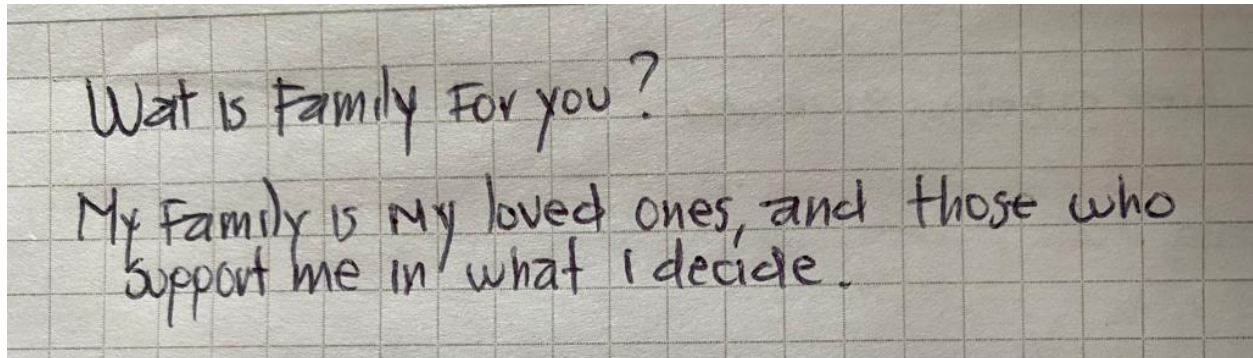 Wat is Family For you?
My Family is My loved ones, and those who
support me in what I decide.